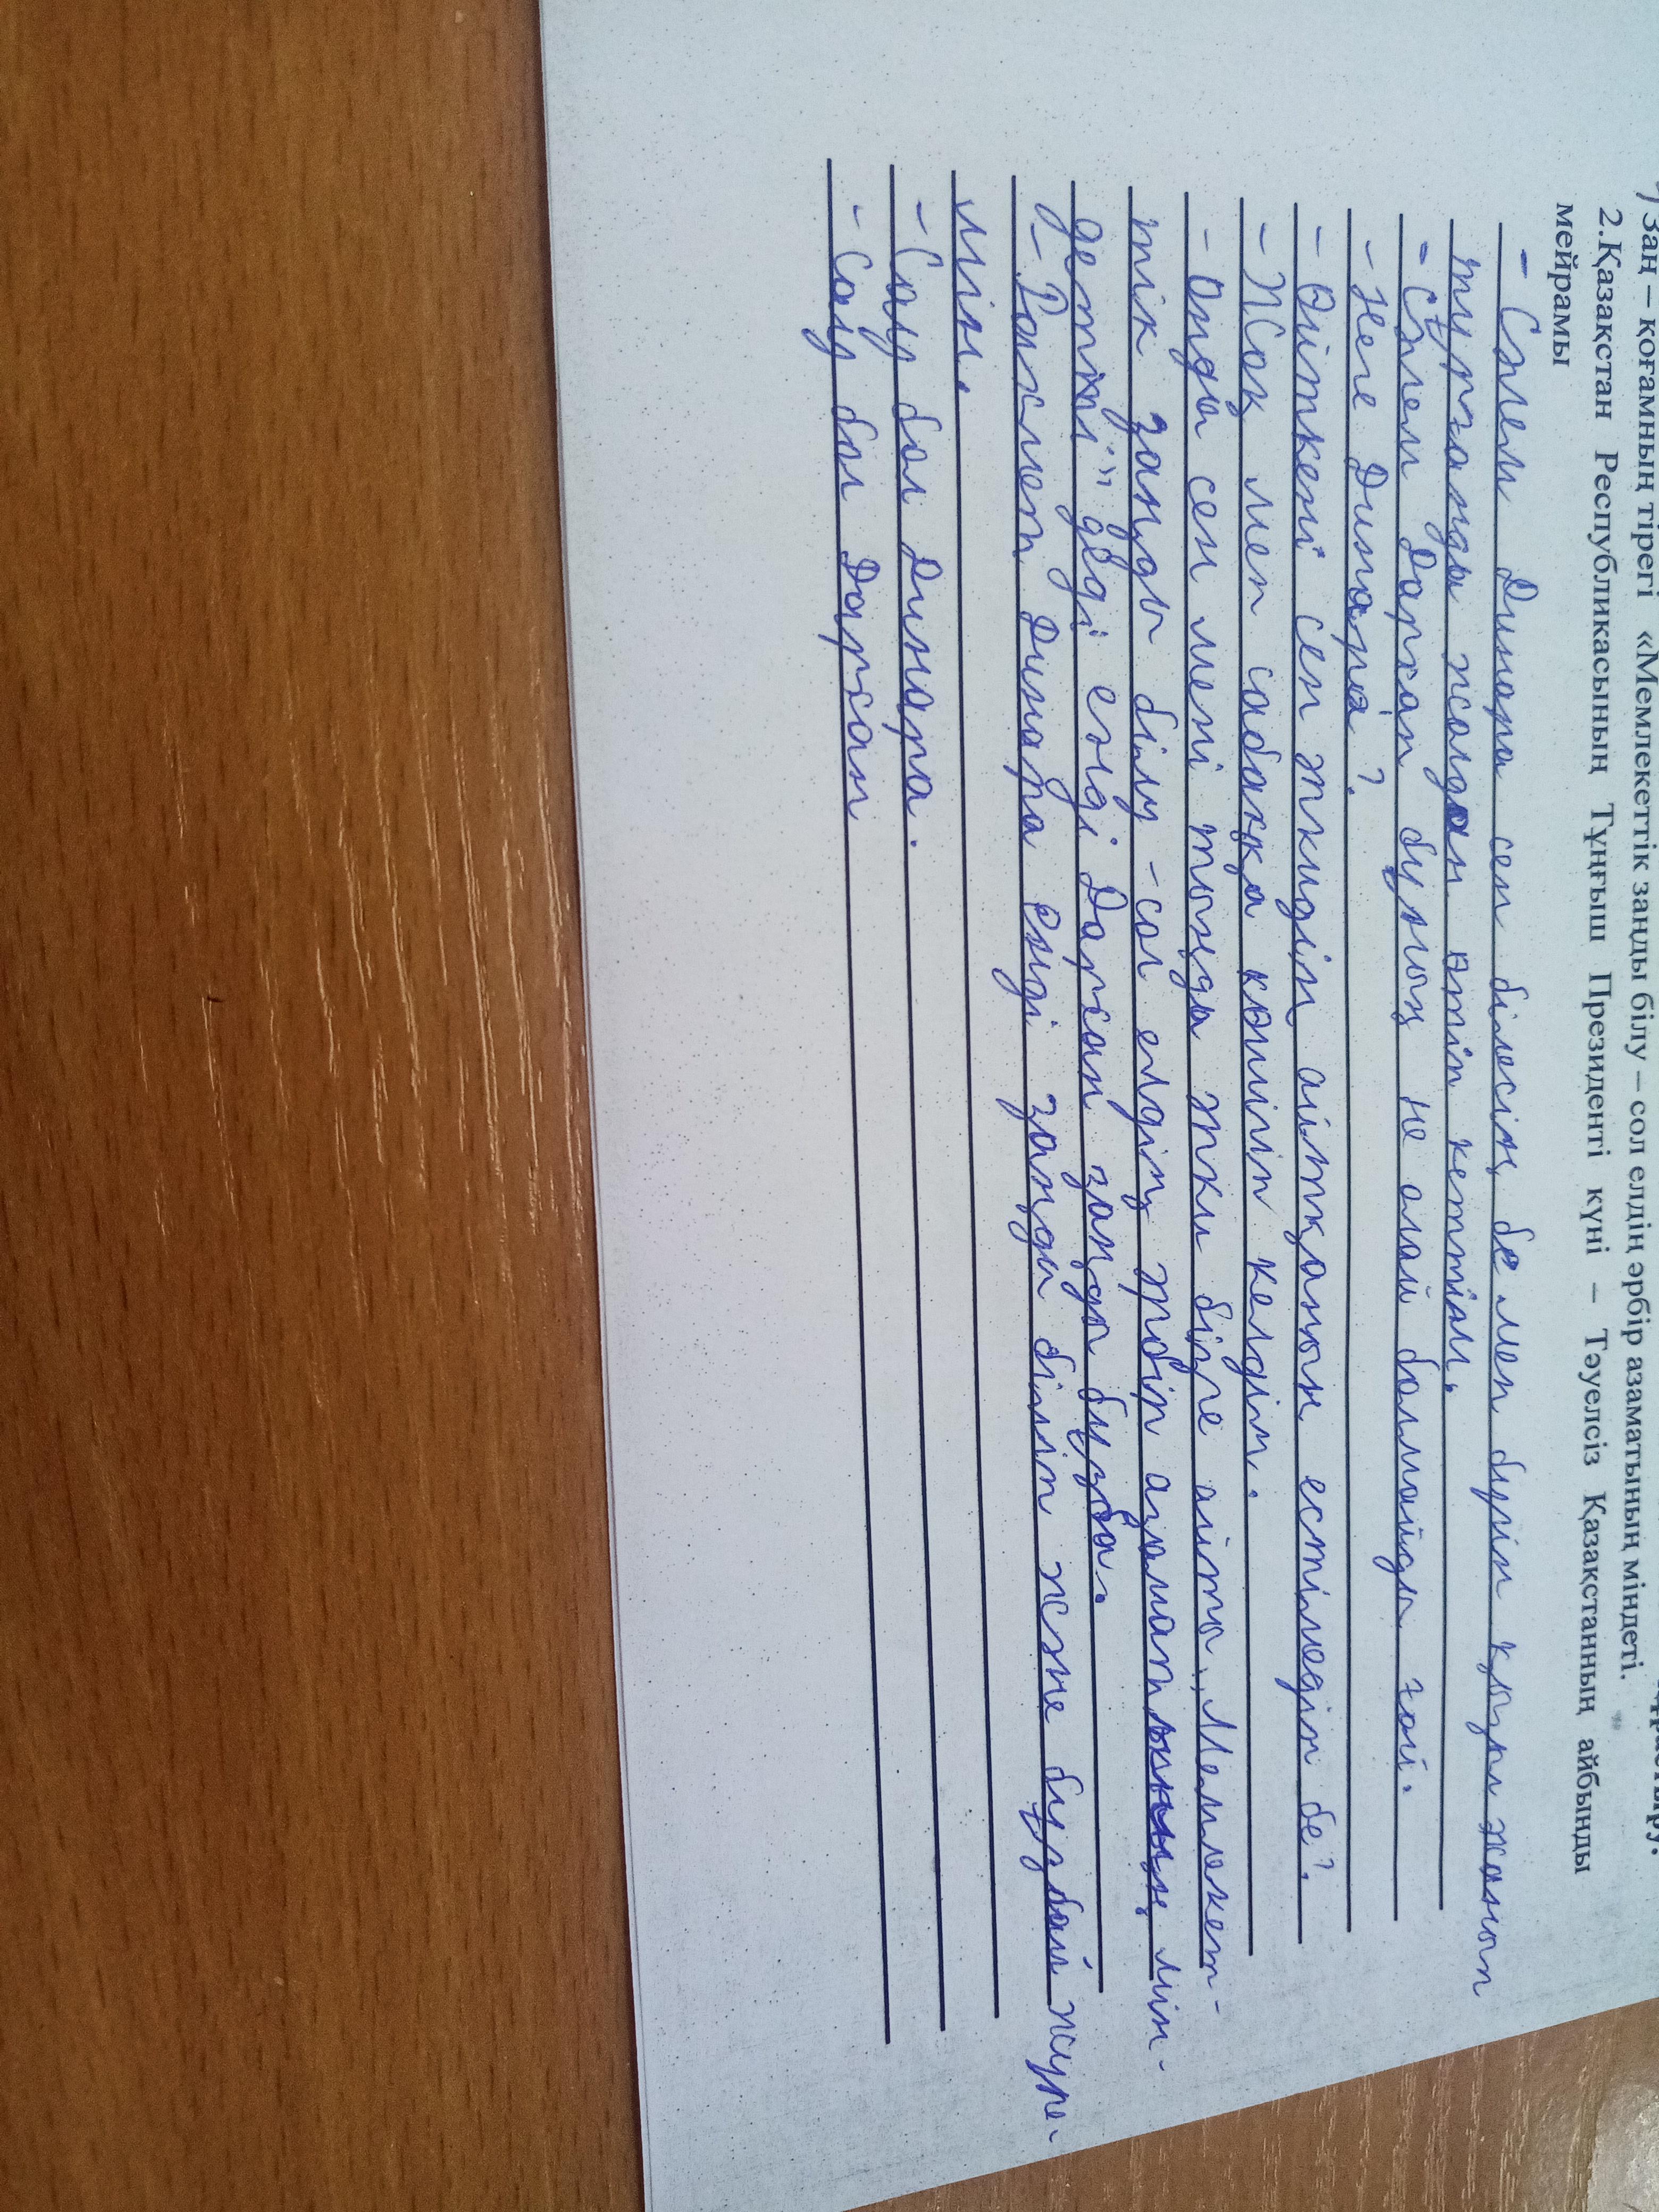 Заң – қоғамның тірегі «Мемлекеттік заңды білу – сол елдің әрбір азаматының міндеті.
2.Қазақстан Республикасының Тұңғыш Президенті күні – Тәуелсіз Қазақстанның айбынды
мейрамы
- Сәлем Динара сен білесің бе мен бүгін қызыл жанып
тұрғанды жолдан өтіп кеттім.
- Сәлем Дархан бұның не олай болмайды ғой.
- Неге Динара?
- Өйткені сен айтқанын естімедің бе?.
- Жоқ мен сабаққа кешігіп келдім.
- Онда сен мені тыңда бізге айтты „Мемлекет-
тік заңды білу - сол елдің әрбір азаматының мін-
деті" деді енді Дархан заңды бұзба.
- Рахмет Динара енді заңды біліп және бұзбай жүре-
мін.
- Сау бол Динара.
- Сау бол Дархан